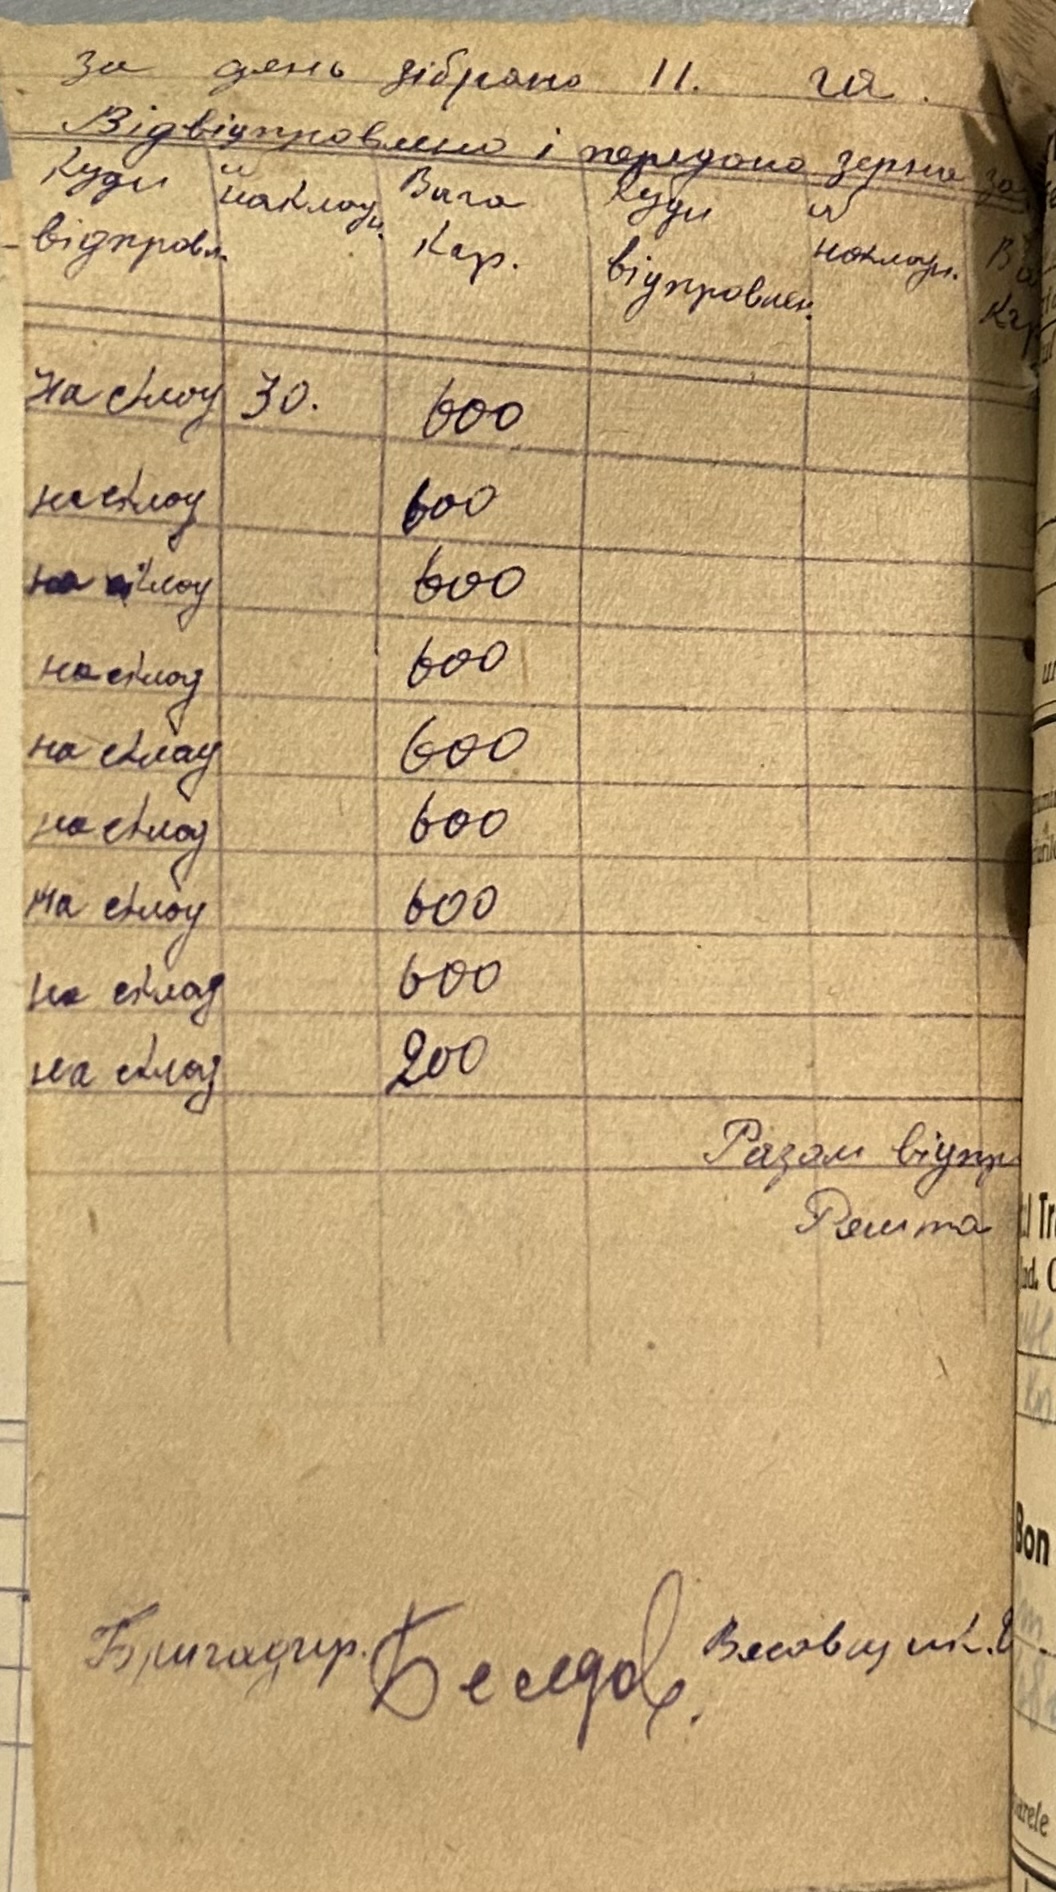 за день зібрано 11. га.
Відвідправлено і передано зерна за
Куди відправл. № наклад. Вага Кгр. Куди відправлен. № накладн. Ва Кгр
На склад 30. 600
на склад 600
на склад 600
на склад 600
на склад 600
на склад 600
на склад 600
на склад 600
на склад 200
Разом відпр
Решта
Бригадир. Весовщик.
Bon
arele